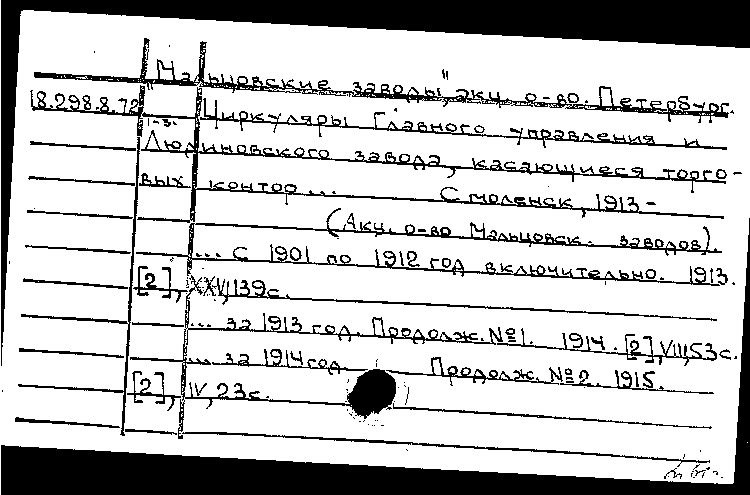 "Мальцовские заводы", акц. о-во. Петербург.
18.298.8.72 Циркуляры Главного управления и
1-3.
Людиновского завода, касающиеся торго-
вых контор... Смоленск, 1913-
(Акц. о-во Мальцовск. заводов).
... с 1901 по 1912 год включительно. 1913.
[2], XXVI, 139с.
... за 1913 год. Продолж. №1. 1914. [2], VIII, 53с.
... за 1914 год. Продолж. №2. 1915.
[2], IV, 23с.